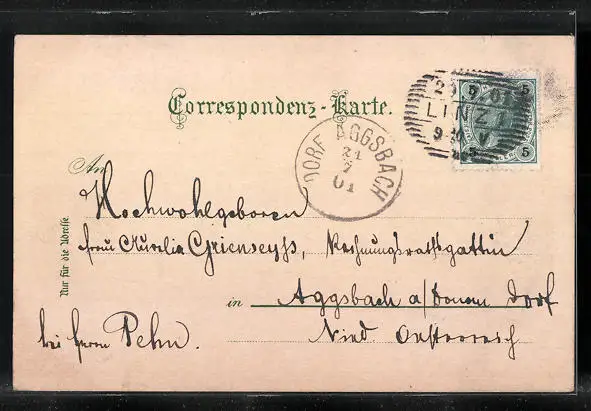 Correspondenz-Karte.
5 5
LINZ
5 5
DORF AGGSBACH
24
7
01
An
Hochwohlgeboren
Frau Aurelia Grienseyß, Rechnungsrathsgattin
in Aggsbach a/Donau Dorf
bei Herrn Pehn. Nied. Oesterreich
Nur für die Adresse.